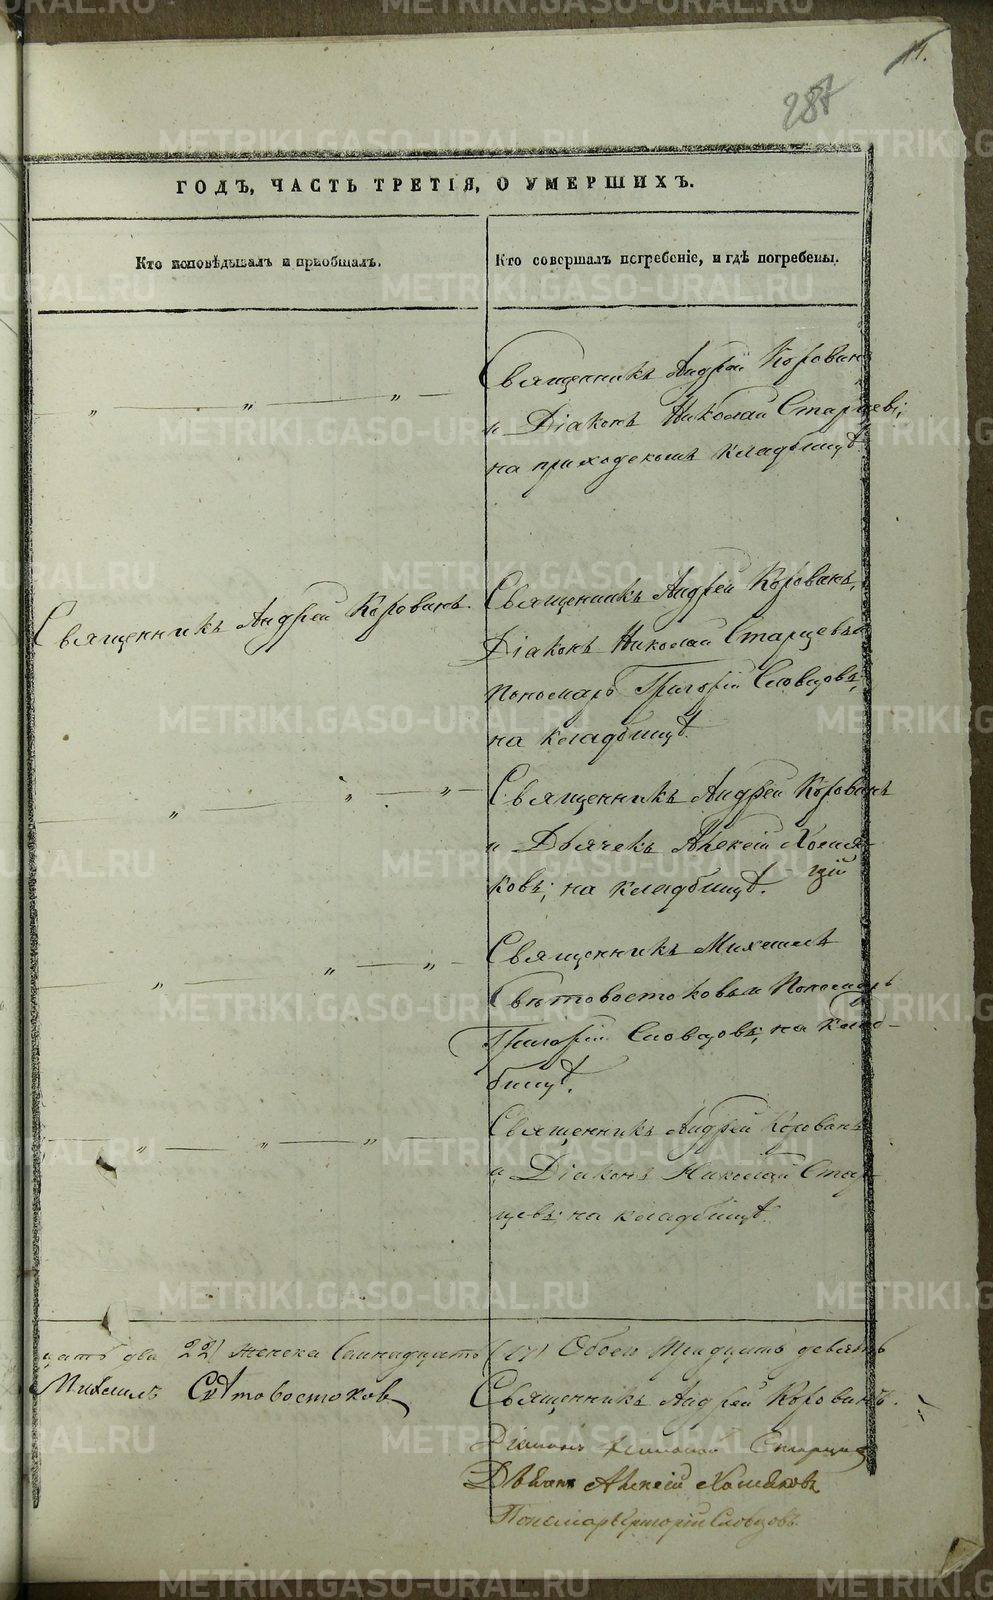 11.
287
ГОДЪ, ЧАСТЬ ТРЕТІЯ, О УМЕРШИХЪ.
Кто исповѣдывалъ и пріобщалъ.
Кто совершалъ погребеніе, и гдѣ погребены.
Священникъ Андрей Корованъ
и Діаконъ Николай Старцевъ;
на приходскомъ кладбищѣ.
Священникъ Андрей Корованъ.
Священникъ Андрей Корованъ,
Діаконъ Николай Старцевъ и
Пономарь Григорій Словцовъ;
на кладбищѣ.
Священникъ Андрей Корованъ
и Дьячекъ Алексій Хомя-
ковъ; на кладбищѣ.
Священникъ Михаилъ
Свѣтовостоковъ и Пономарь
Григорій Словцовъ; на клад-
бищѣ.
Священникъ Андрей Корованъ
и Діаконъ Николай Стар-
цевъ; на кладбищѣ.
цать два 22) женска семнадцать (17) Обоего тридцать девять
Михаилъ Свѣтовостоковъ
Священникъ Андрей Корованъ.
Діаконъ Николай Старцевъ
Алексій Хомяковъ
Пономарь Григорій Словцовъ
METRIKI.GASO-URAL.RU